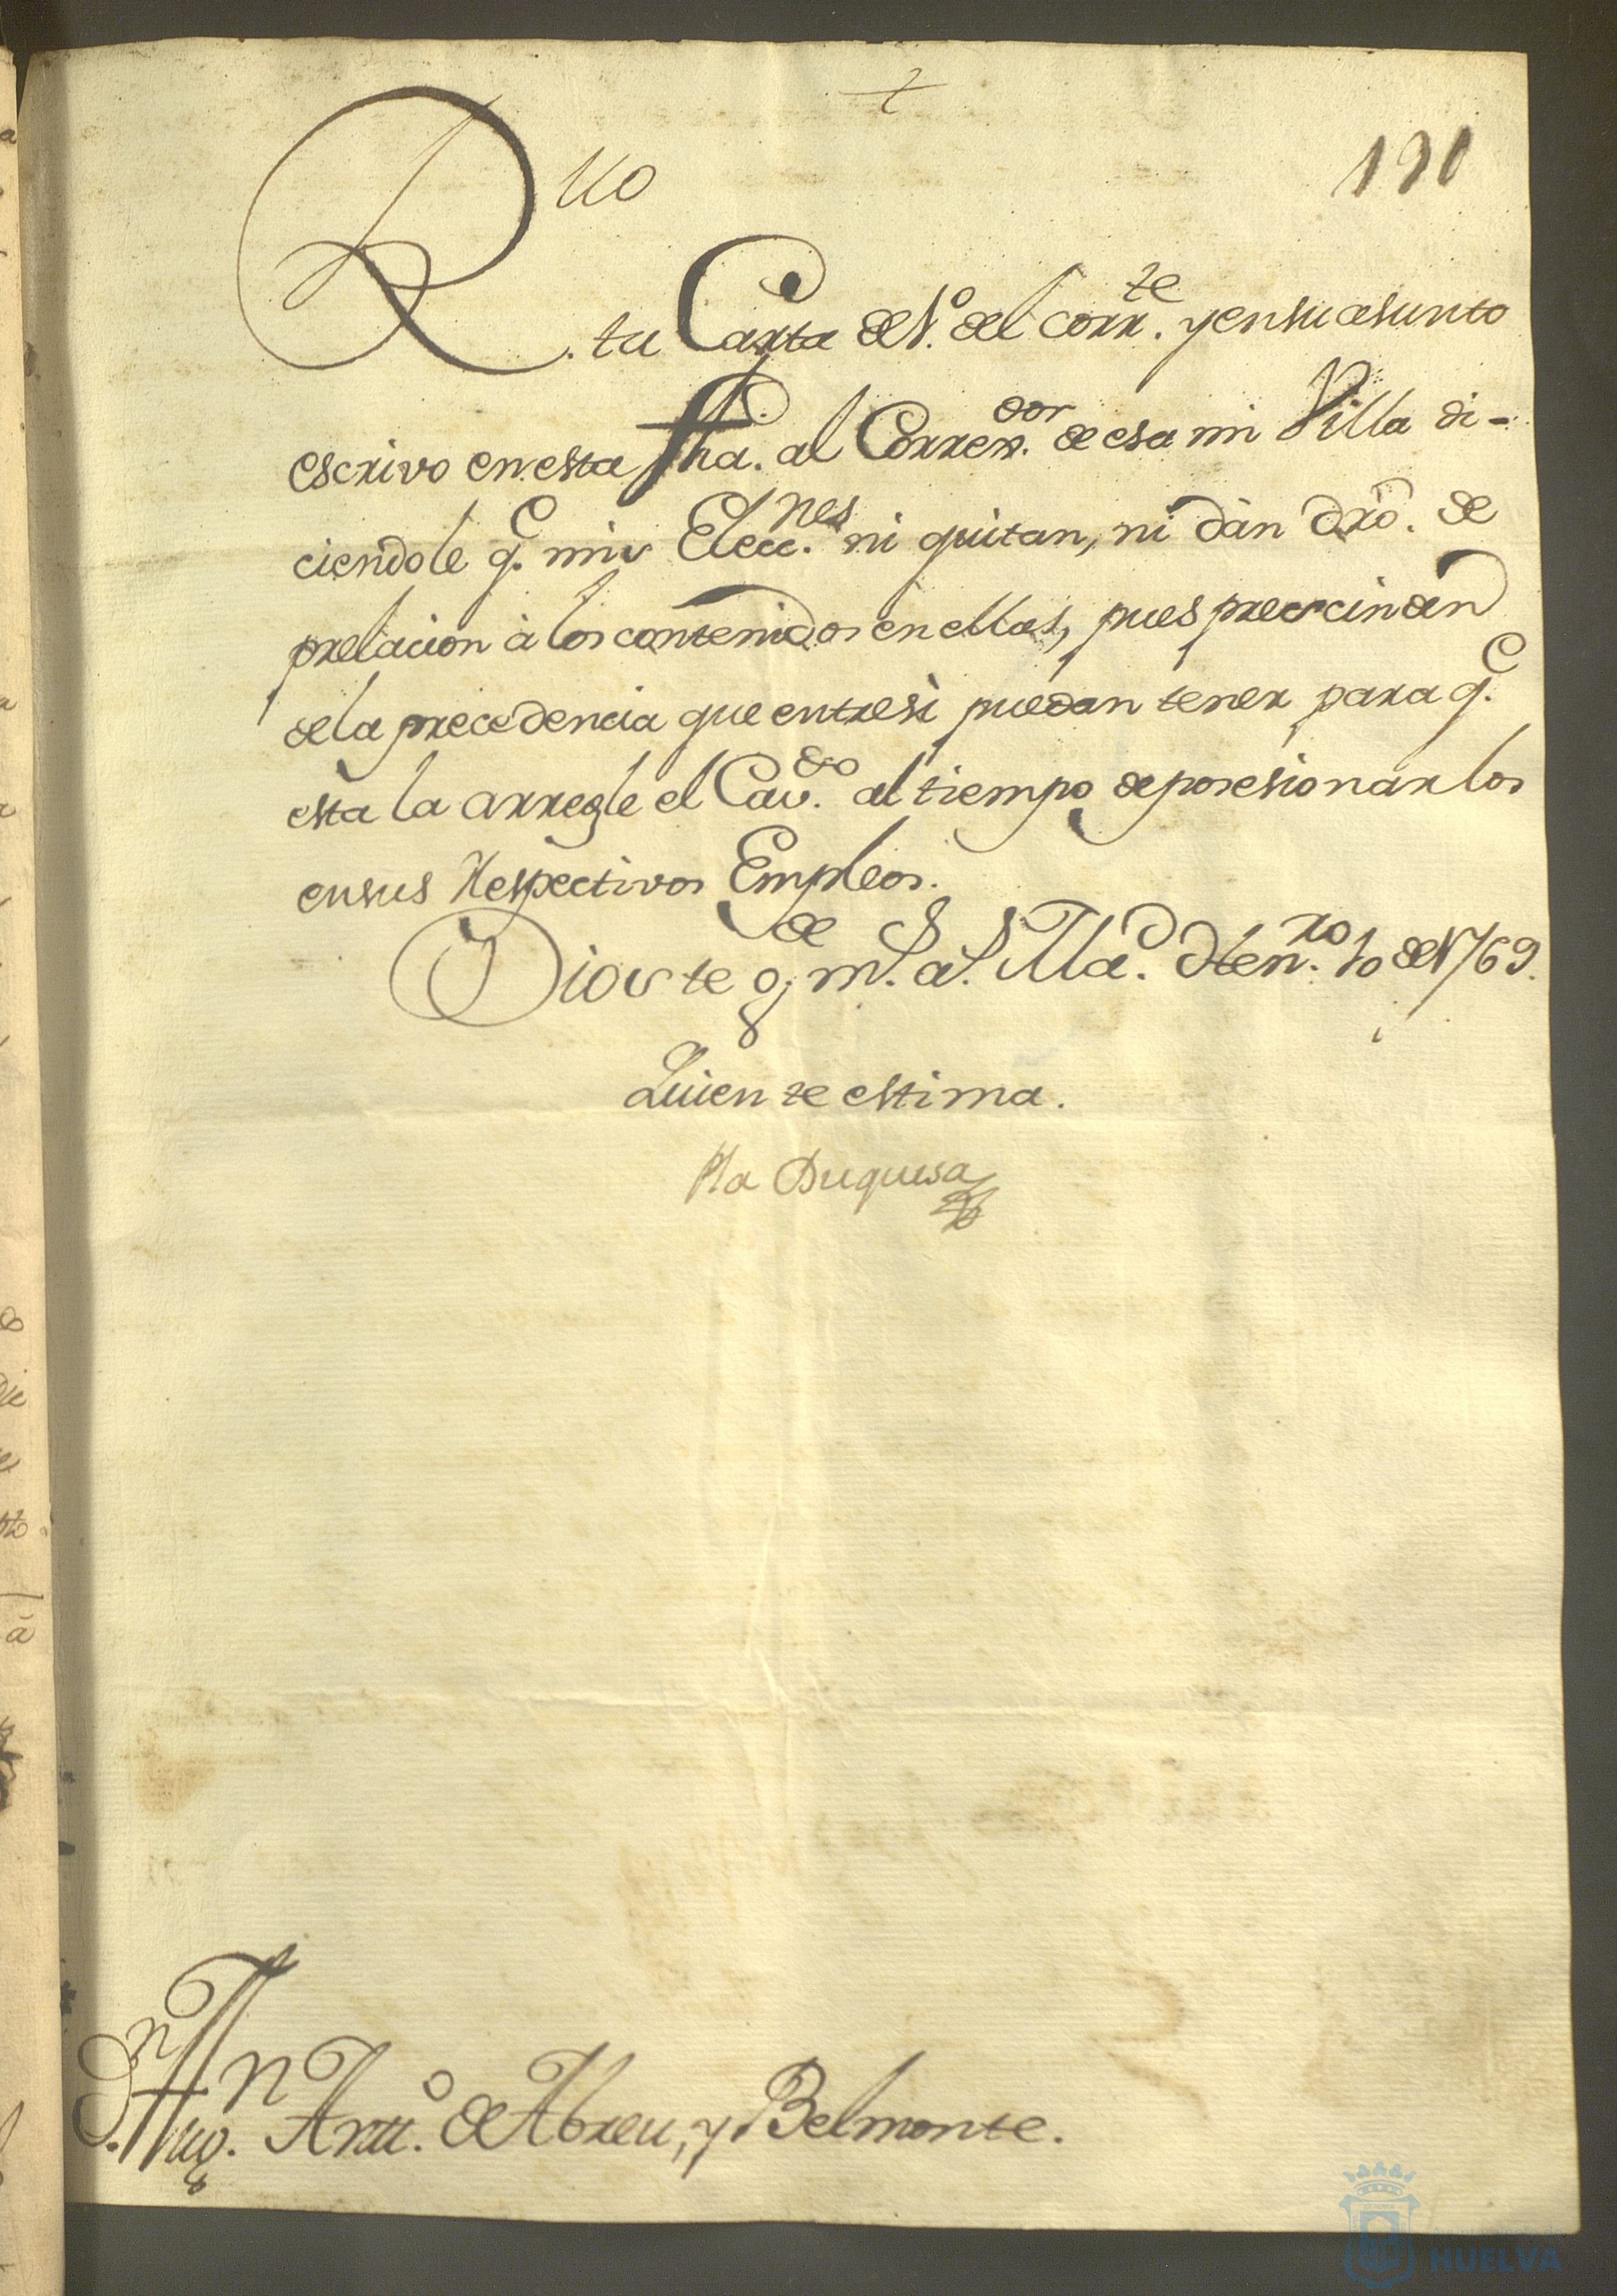 190
Rvo
tu Carta de 1º. del corr.te y en su asunto
escrivo en esta fha. al Correx.dor de esa mi Villa di-
ciendole q.e mis Elecc.nes ni quitan, ni dàn dro. de
prelacion à los contenidos en ellas, pues prescinden
de la precedencia que entre sì puedan tener para q.e
esta la arregle el Cav.do al tiempo de posesionarlos
en sus Respectivos Empleos.
Dios te g.de m.s a.s Mad. Hen.ro 10 de 1769.
Quien te estima.
La Duquesa
D.n Aug.n Antt.o de Abreu, y Belmonte.
HUELVA